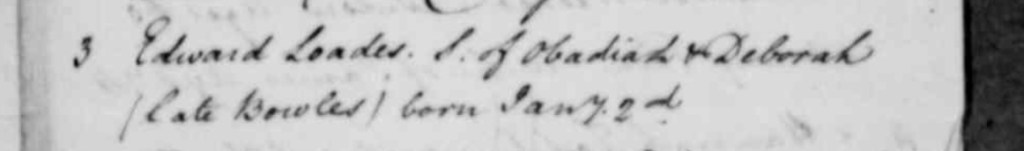 3 Edward Loades. S. of Obadiah & Deborah
(late Bowles) born Jany. 2d